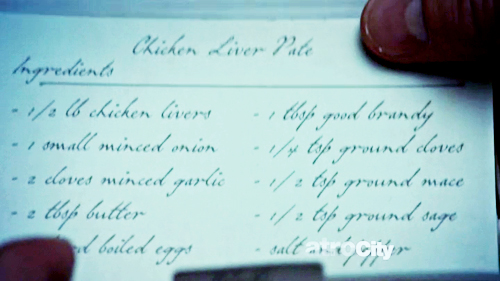 Chicken Liver Pate
Ingredients
- 1/2 lb chicken livers
- 1 small minced onion
- 2 cloves minced garlic
- 2 tbsp butter
boiled eggs
- 1 tbsp good brandy
- 1/4 tsp ground cloves
- 1/2 tsp ground mace
- 1/2 tsp ground sage
- salt and pepper
atroCity